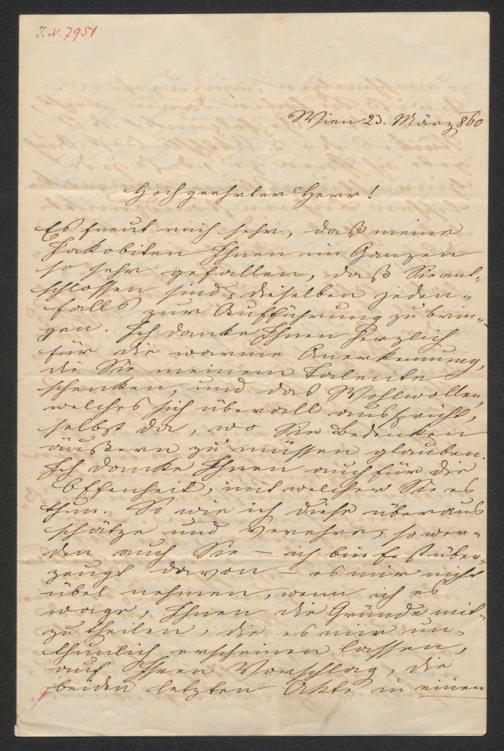 J.N. 7951
Wien 23. März 860
Hochgeehrter Herr!
Es freut mich sehr, daß meine
Jakobiten Ihnen im Ganzen
so sehr gefallen, daß Sie ent-
schlossen sind, dieselben jeden-
falls zur Aufführung zu brin-
gen. Ich danke Ihnen herzlich
für die warme Anerkennung,
die Sie meinem Talente
schenken, und das Wohlwollen,
welches sich überall ausspricht,
selbst da, wo Sie Bedenken
äußern zu müssen glauben.
Ich danke Ihnen auch für die
Offenheit, mit welcher Sie es
thun. So wie ich diese überaus
schätze und verehre, so wer-
den auch Sie – ich bin fest über-
zeugt davon – es mir nicht
übel nehmen, wenn ich es
wage, Ihnen die Gründe mit-
zutheilen, die es mir un-
thunlich erscheinen lassen,
auf Ihren Vorschlag, die
beiden letzten Akte in einen